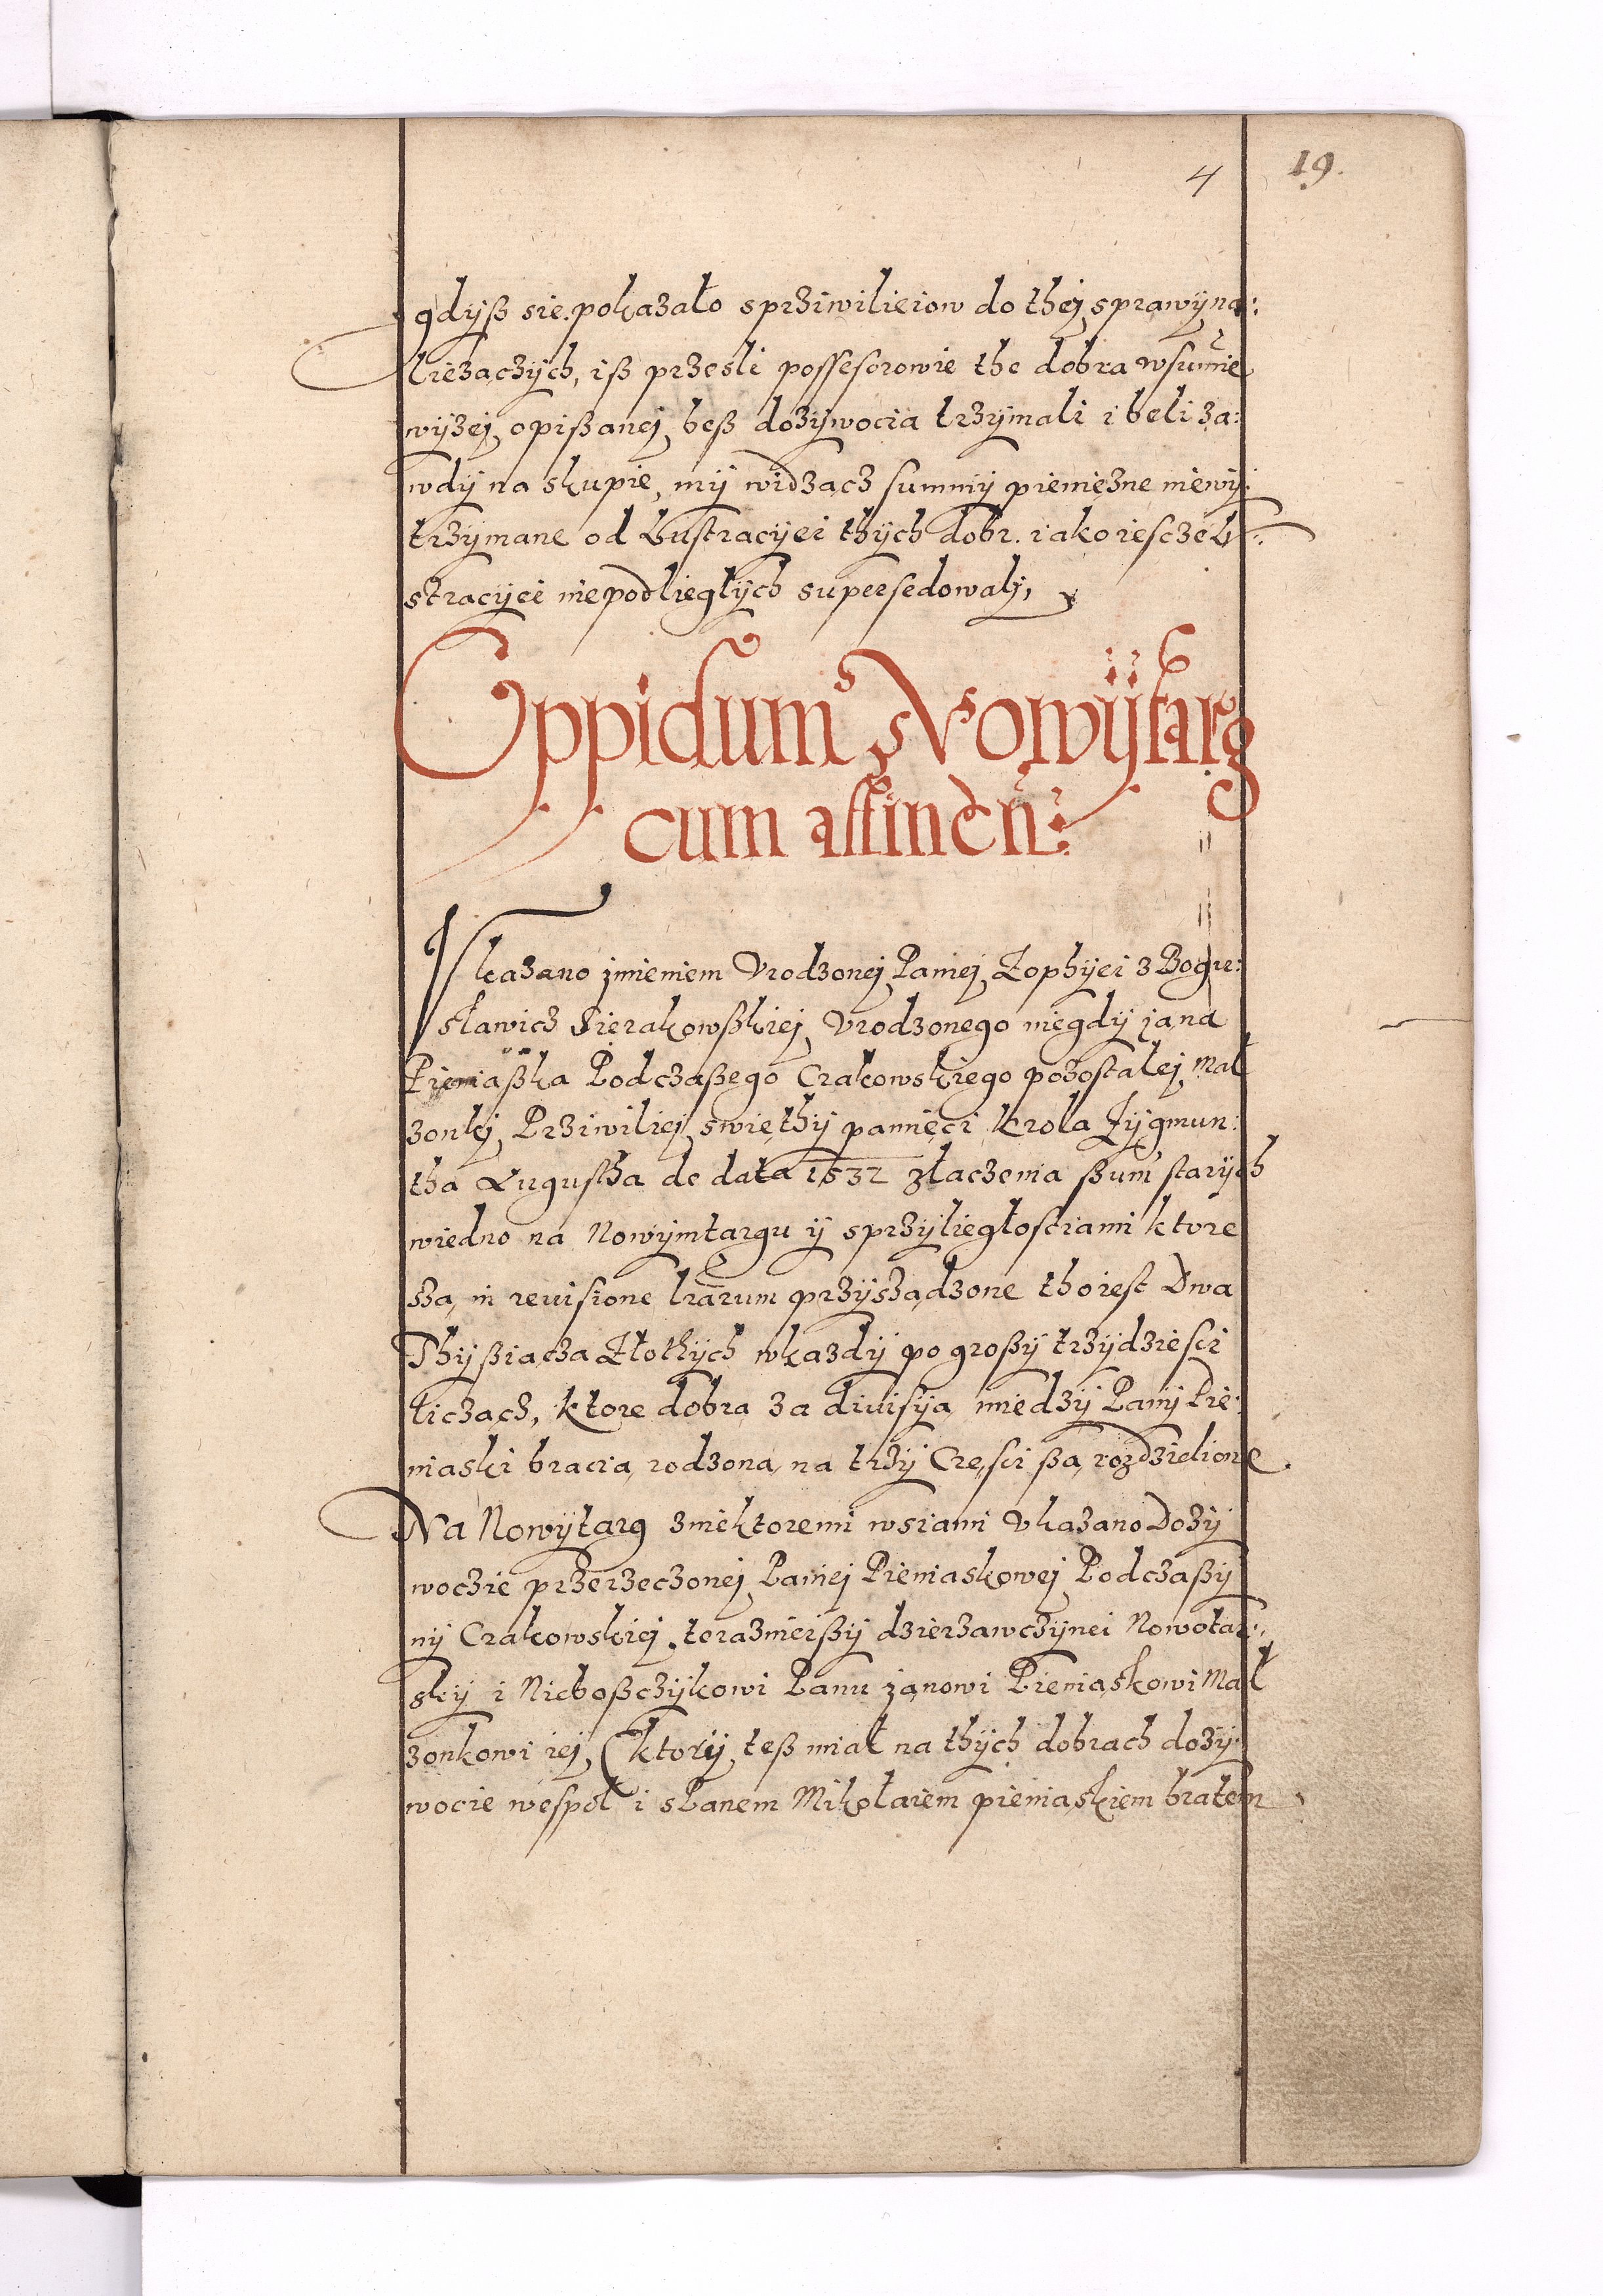 4 19.
gdyß sie pokazało sprziwilieiow do thej sprawy na:
liezączych, iß przesli possesorowie the dobra wsumie
wyzej opißanej beß dozywocia trzymali i beli za:
wdy na skupie, my widząc summy pieniężne niewy:
trzymane od Lustracyei thych dobr. iako iescze lu:
stracyei niepodliegłych supersedowaly,
Oppidum Nowytarg
cum attinen:
Vkazano jmieniem Vrodzonej Paniej Zophyei z Bogu:
sławicz Sierakowßkiej, Vrodzonego niegdy jana
Pieniaßka Podczaßego Crakowskiego pozostałej Mał
zonkj Prziwiliej swięthy pamięci krola Zygmun:
tha Augustha de data 1532 złaczenia ßum starych
wiedno na Nowymtargu y sprzyliegłosciami ktore
są, in reuisione lrarum przysądzone tho iest Dwa
Thyßiącza Złothych wkazdy po großy trzydziesci
licząch, ktore dobra za diuisyą miedzy Pany Pie:
niaski bracią, rodzoną, na trzy Cręsci ßą, rozdzielione.
Na Nowytarg zniektoremi wsiami Vkazano Dozy
woczie przerzeczonej Paniej Pieniaskowej Podczaßy
ny Crakowskiej terazniejßy dzierzawczynei Nowotar:
sky i Nieboßczykowi Panu janowi Pieniaskowi Mał
zonkowi iej, (ktory teß miał na thych dobrach dozy:
wocie wespoł i sPanem Mikołaiem pieniaskiem bratem